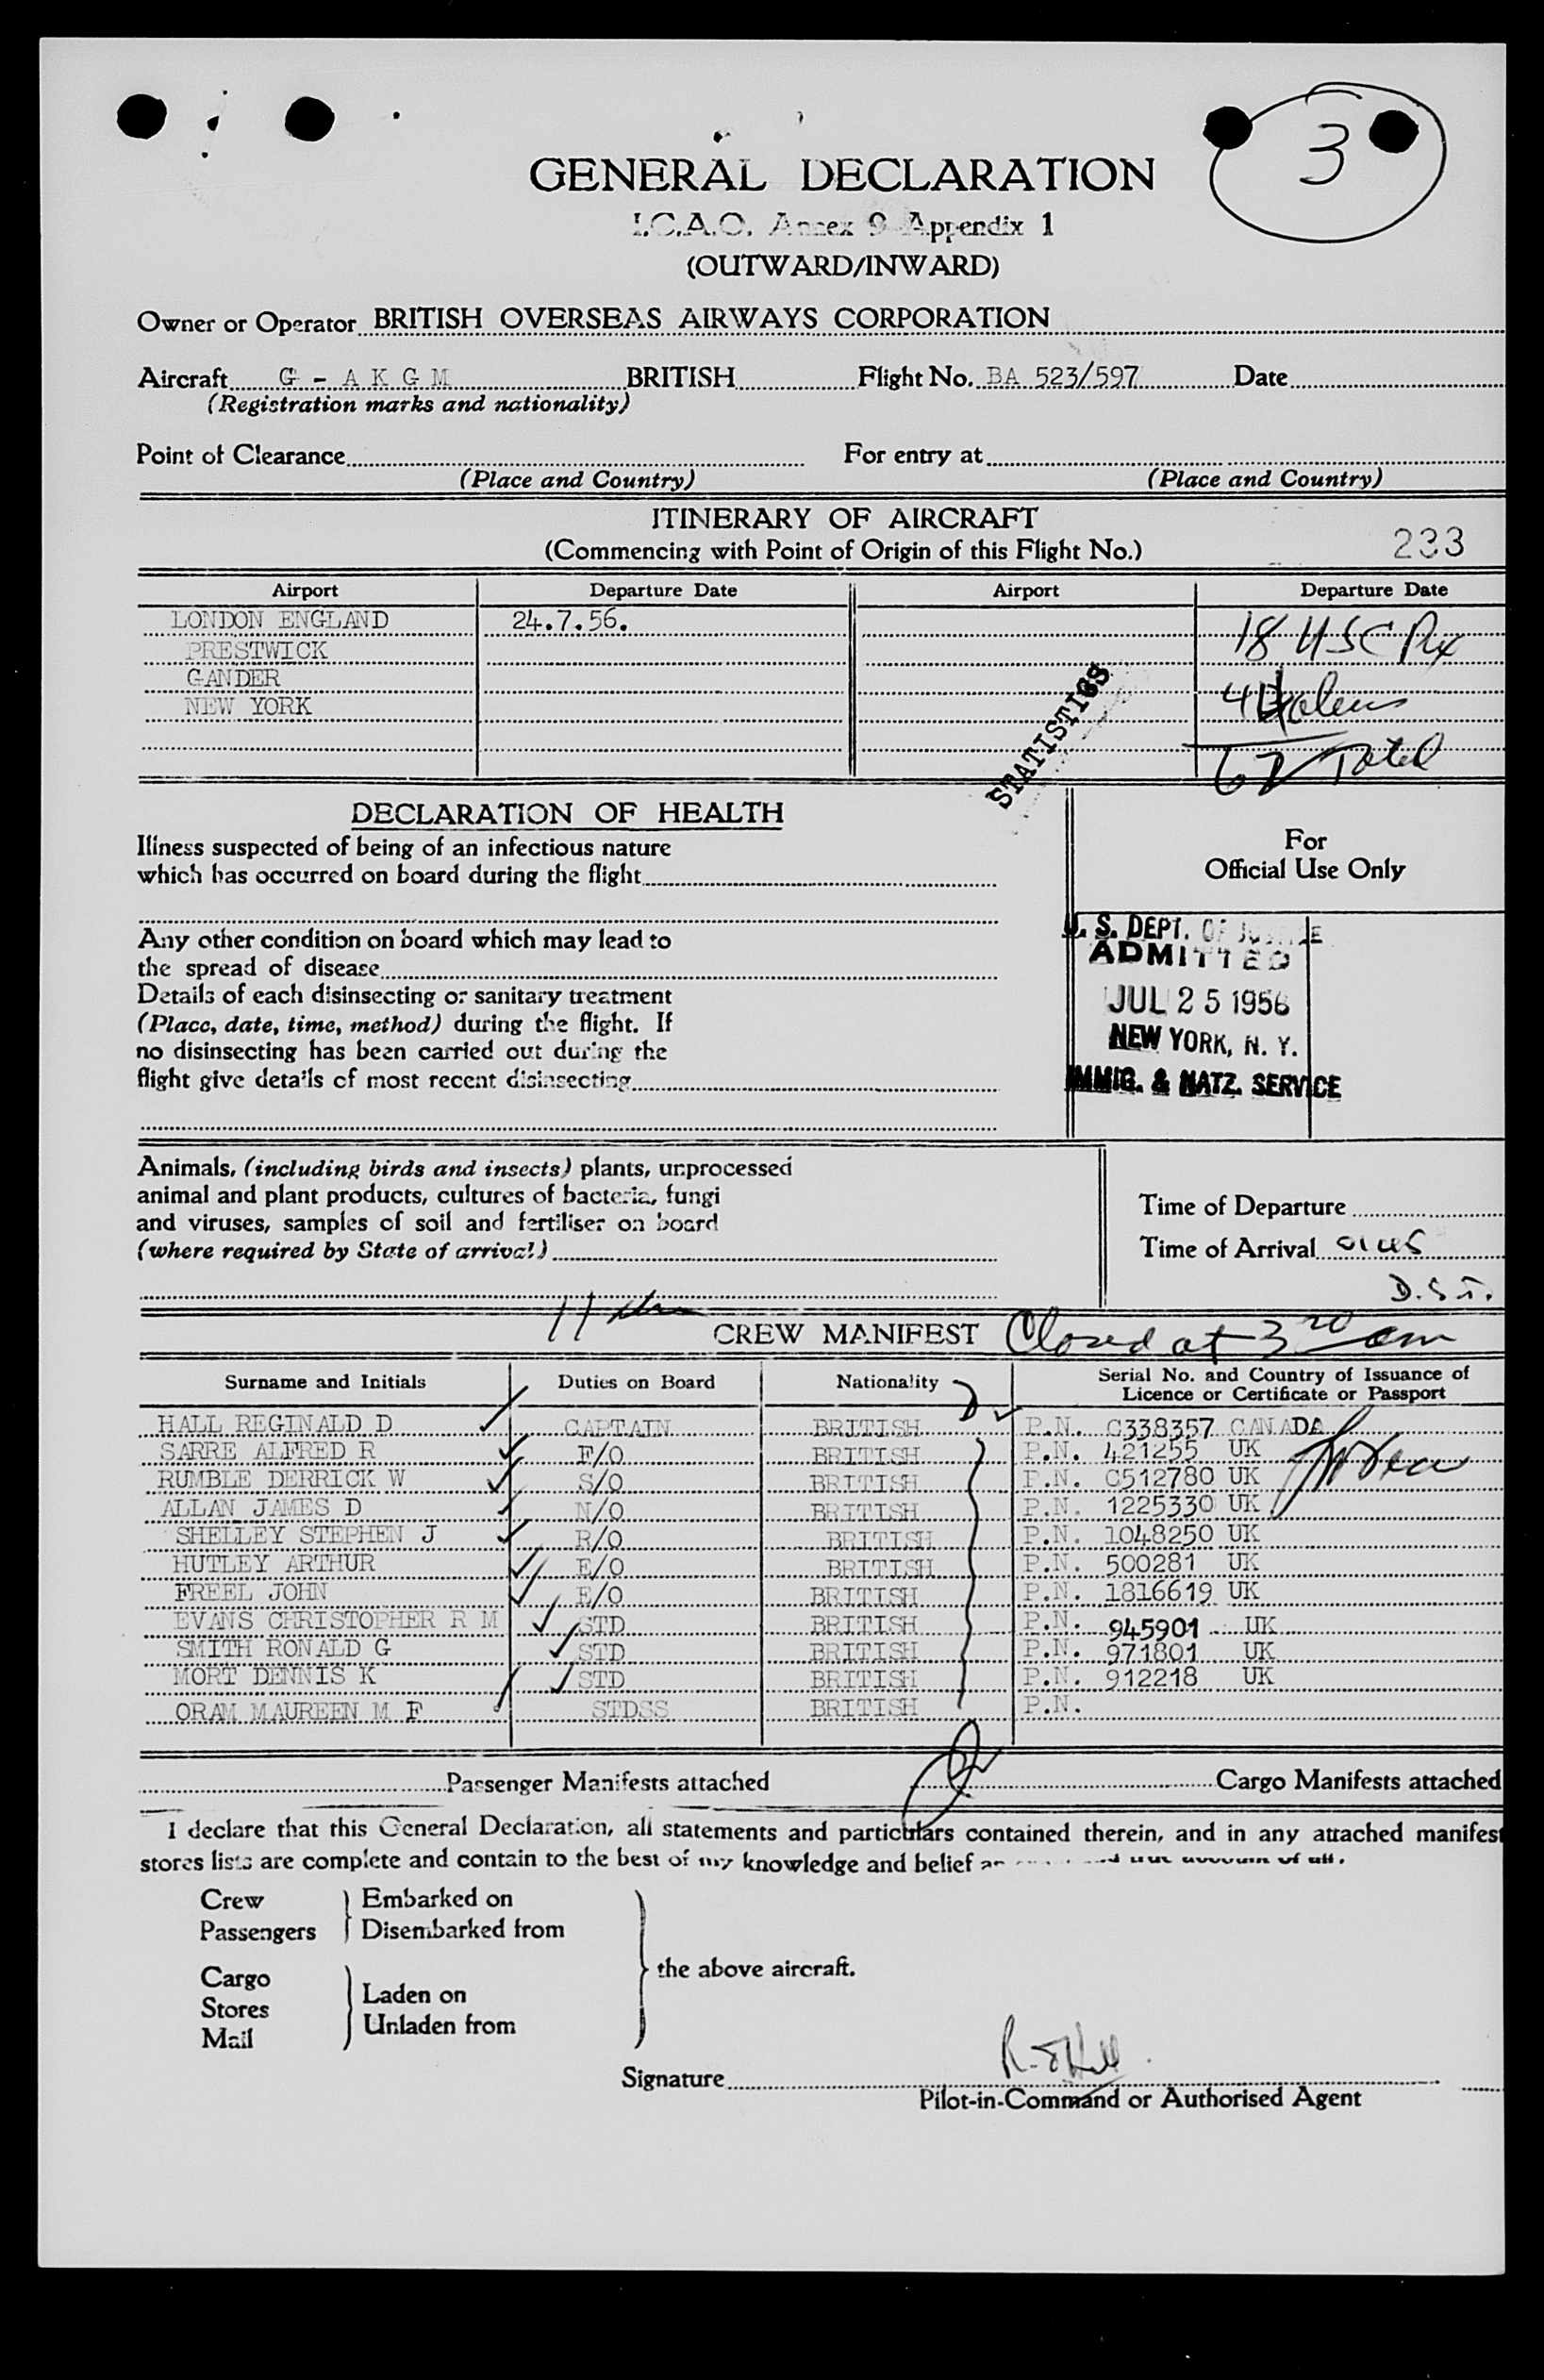 3
GENERAL DECLARATION
I.C.A.O. Annex 9 Appendix 1
(OUTWARD/INWARD)
Owner or Operator BRITISH OVERSEAS AIRWAYS CORPORATION
Aircraft G - A K G M BRITISH Flight No. BA 523/597 Date
(Registration marks and nationality)
Point of Clearance For entry at
(Place and Country) (Place and Country)
ITINERARY OF AIRCRAFT
(Commencing with Point of Origin of this Flight No.) 233
Airport Departure Date Airport Departure Date
LONDON ENGLAND 24.7.56. 18 USC
PRESTWICK
GANDER
NEW YORK
STATISTICS
Total
DECLARATION OF HEALTH
Illness suspected of being of an infectious nature
which has occurred on board during the flight
For
Official Use Only
Any other condition on board which may lead to
the spread of disease
Details of each disinsecting or sanitary treatment
(Place, date, time, method) during the flight. If
no disinsecting has been carried out during the
flight give details of most recent disinsecting
U. S. DEPT. OF JUSTICE
ADMITTED
JUL 25 1956
NEW YORK, N. Y.
IMMIG. & NATZ. SERVICE
Animals, (including birds and insects) plants, unprocessed
animal and plant products, cultures of bacteria, fungi
and viruses, samples of soil and fertiliser on board
(where required by State of arrival)
Time of Departure
Time of Arrival
D.S.T.
11
CREW MANIFEST Closed at 3 am
Surname and Initials Duties on Board Nationality Serial No. and Country of Issuance of
Licence or Certificate or Passport
HALL REGINALD D CAPTAIN BRITISH P.N. C338357 CANADA
SARRE ALFRED R F/O BRITISH P.N. 421255 UK
RUMBLE DERRICK W S/O BRITISH P.N. C512780 UK
ALLAN JAMES D N/O BRITISH P.N. 1225330 UK
SHELLEY STEPHEN J R/O BRITISH P.N. 1048250 UK
HUTLEY ARTHUR E/O BRITISH P.N. 500281 UK
FREEL JOHN E/O BRITISH P.N. 1816619 UK
EVANS CHRISTOPHER R M STD BRITISH P.N. 945901 UK
SMITH RONALD G STD BRITISH P.N. 971801 UK
MORT DENNIS K STD BRITISH P.N. 912218 UK
ORAM MAUREEN M F STDSS BRITISH P.N.
Passenger Manifests attached Cargo Manifests attached
I declare that this General Declaration, all statements and particulars contained therein, and in any attached manifest
stores lists are complete and contain to the best of my knowledge and belief
Crew Embarked on
Passengers Disembarked from
the above aircraft.
Cargo
Stores Laden on
Mail Unladen from
Signature
Pilot-in-Command or Authorised Agent